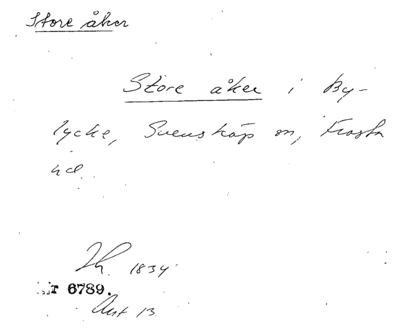 Store åker
Store åker i By-
lycke, Svensköp sn, Frosta
hd.
1834
nr 6789.
13